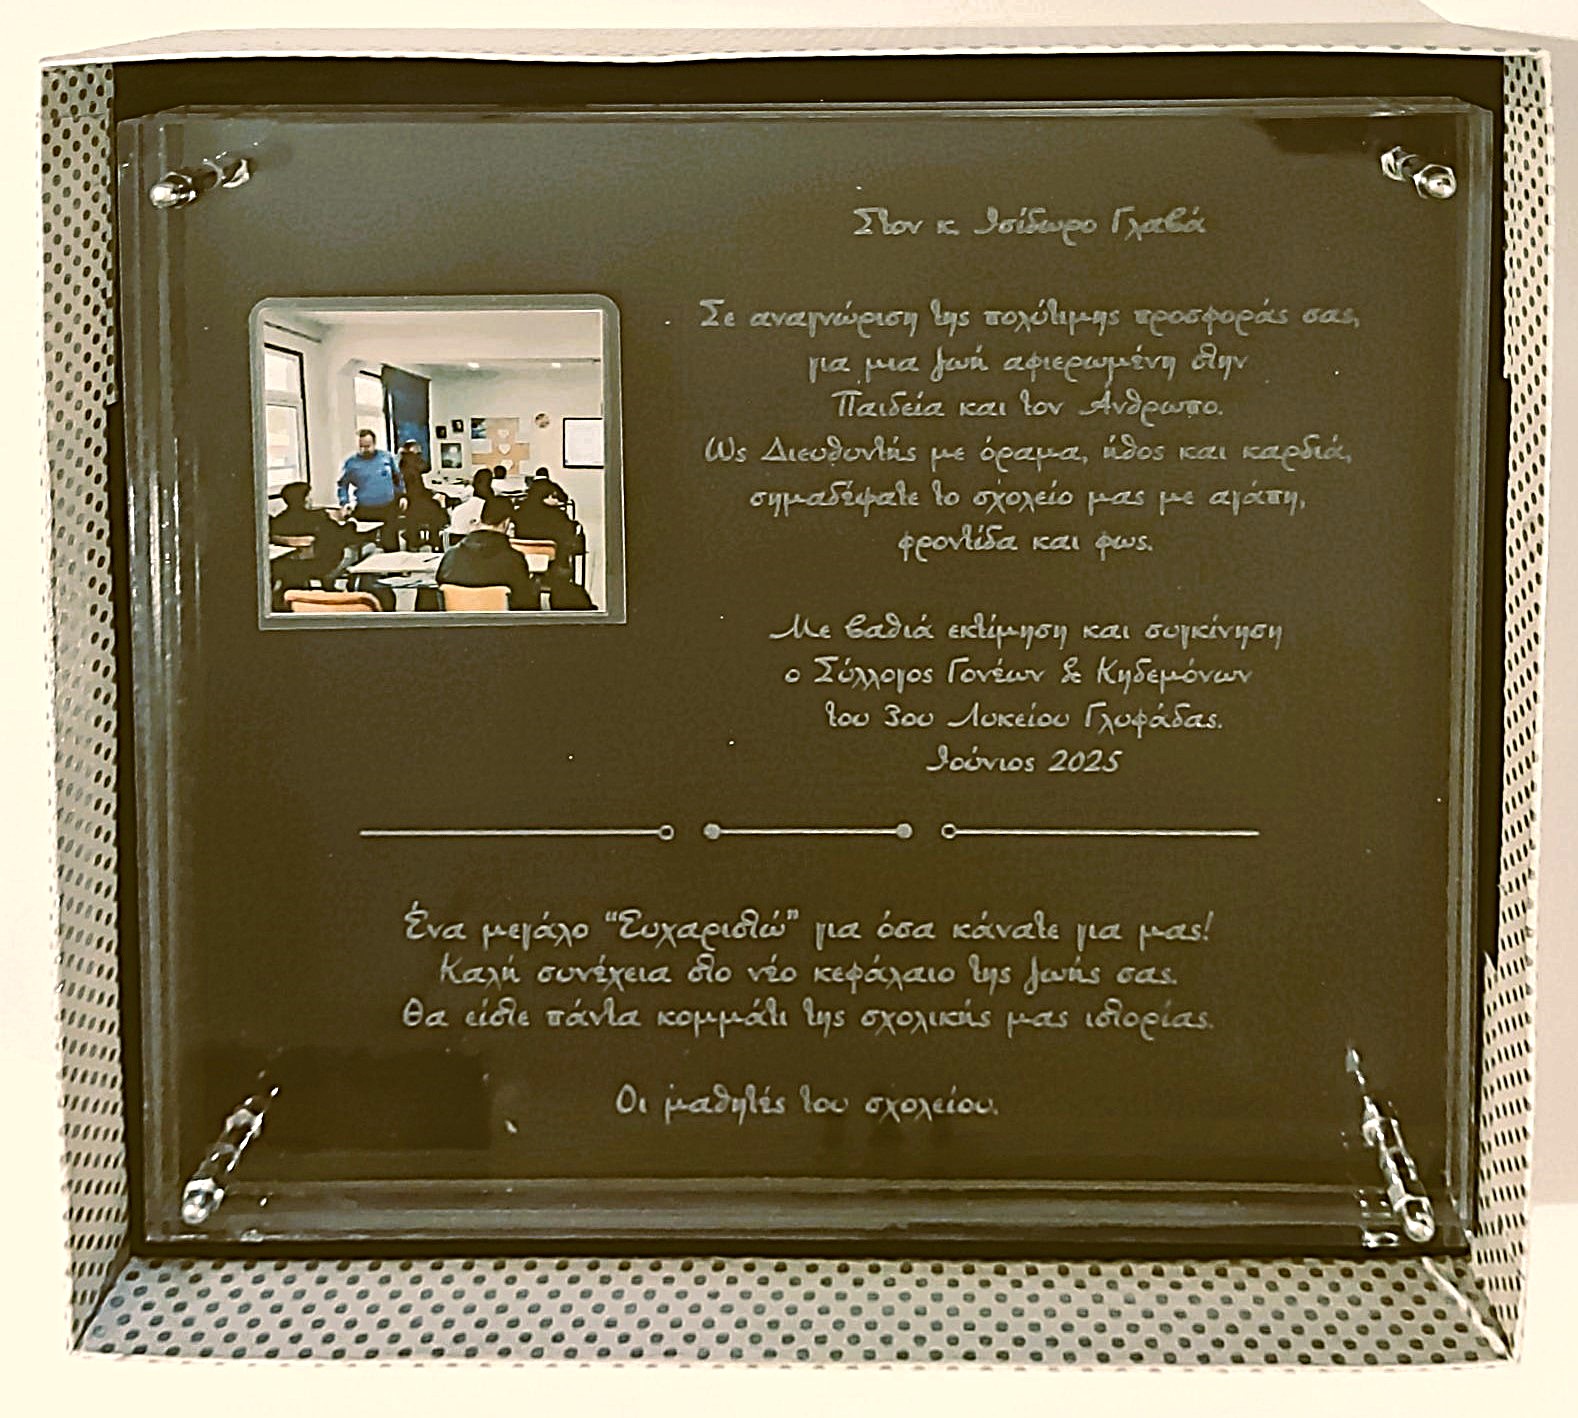 Στον κ. Ισίδωρο Γλαβά
Σε αναγνώριση της πολύτιμης προσφοράς σας,
για μια ζωή αφιερωμένη στην
Παιδεία και τον Άνθρωπο.
Ως Διευθυντής με όραμα, ήθος και καρδιά,
σημαδέψατε το σχολείο μας με αγάπη,
φροντίδα και φως.
Με βαθιά εκτίμηση και συγκίνηση
ο Σύλλογος Γονέων & Κηδεμόνων
του 3ου Λυκείου Γλυφάδας.
Ιούνιος 2025
Ένα μεγάλο “Ευχαριστώ” για όσα κάνατε για μας!
Καλή συνέχεια στο νέο κεφάλαιο της ζωής σας.
Θα είστε πάντα κομμάτι της σχολικής μας ιστορίας.
Οι μαθητές του σχολείου.